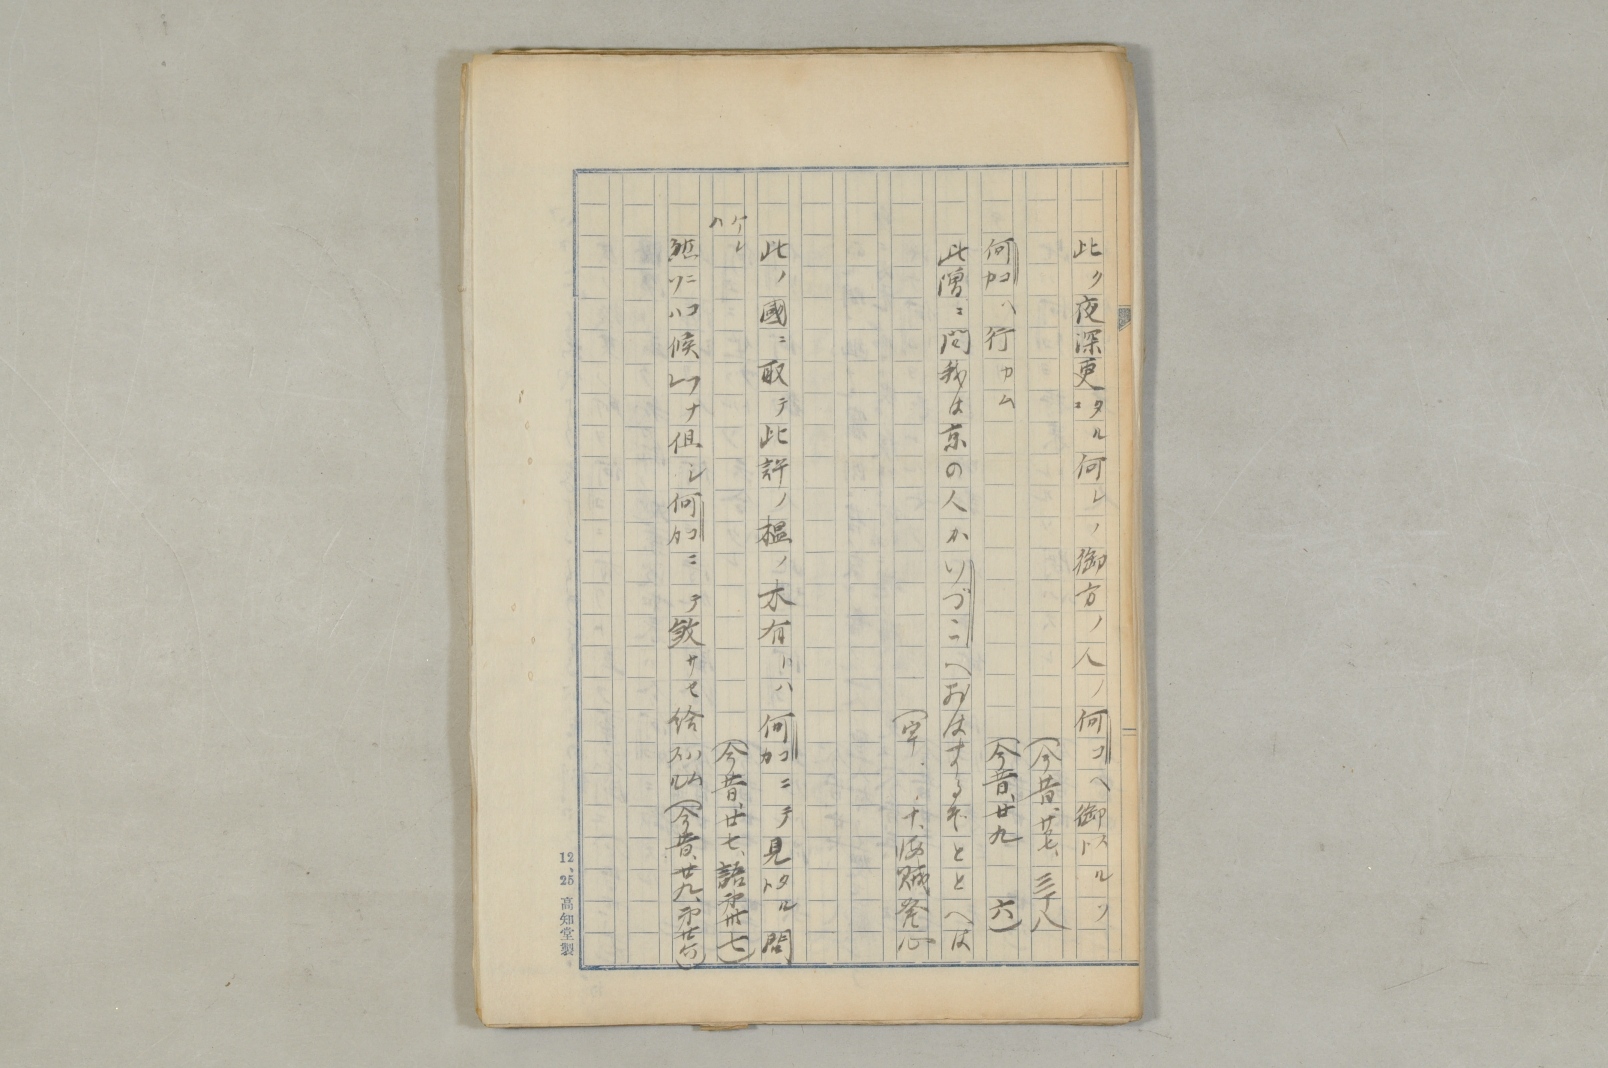 此ク夜深更ニタル何レノ御方ノ人ノ何コヘ御ストルソ
(今昔、廿七、三十八
何カコヘ行カム
(今昔、廿九 六)
此僧ニ問我は京の人かいづこへおはするぞととへは
十、海賊発心
此ノ國ニ取テ此許ノ榲ノ木有ハ何カコニテ見タル問
ケレハ
(今昔、廿七、語第卅七)
然ニ候ナ但シ何カコニテ敎サセ給
(今昔、廿九、
12、25 高知堂製